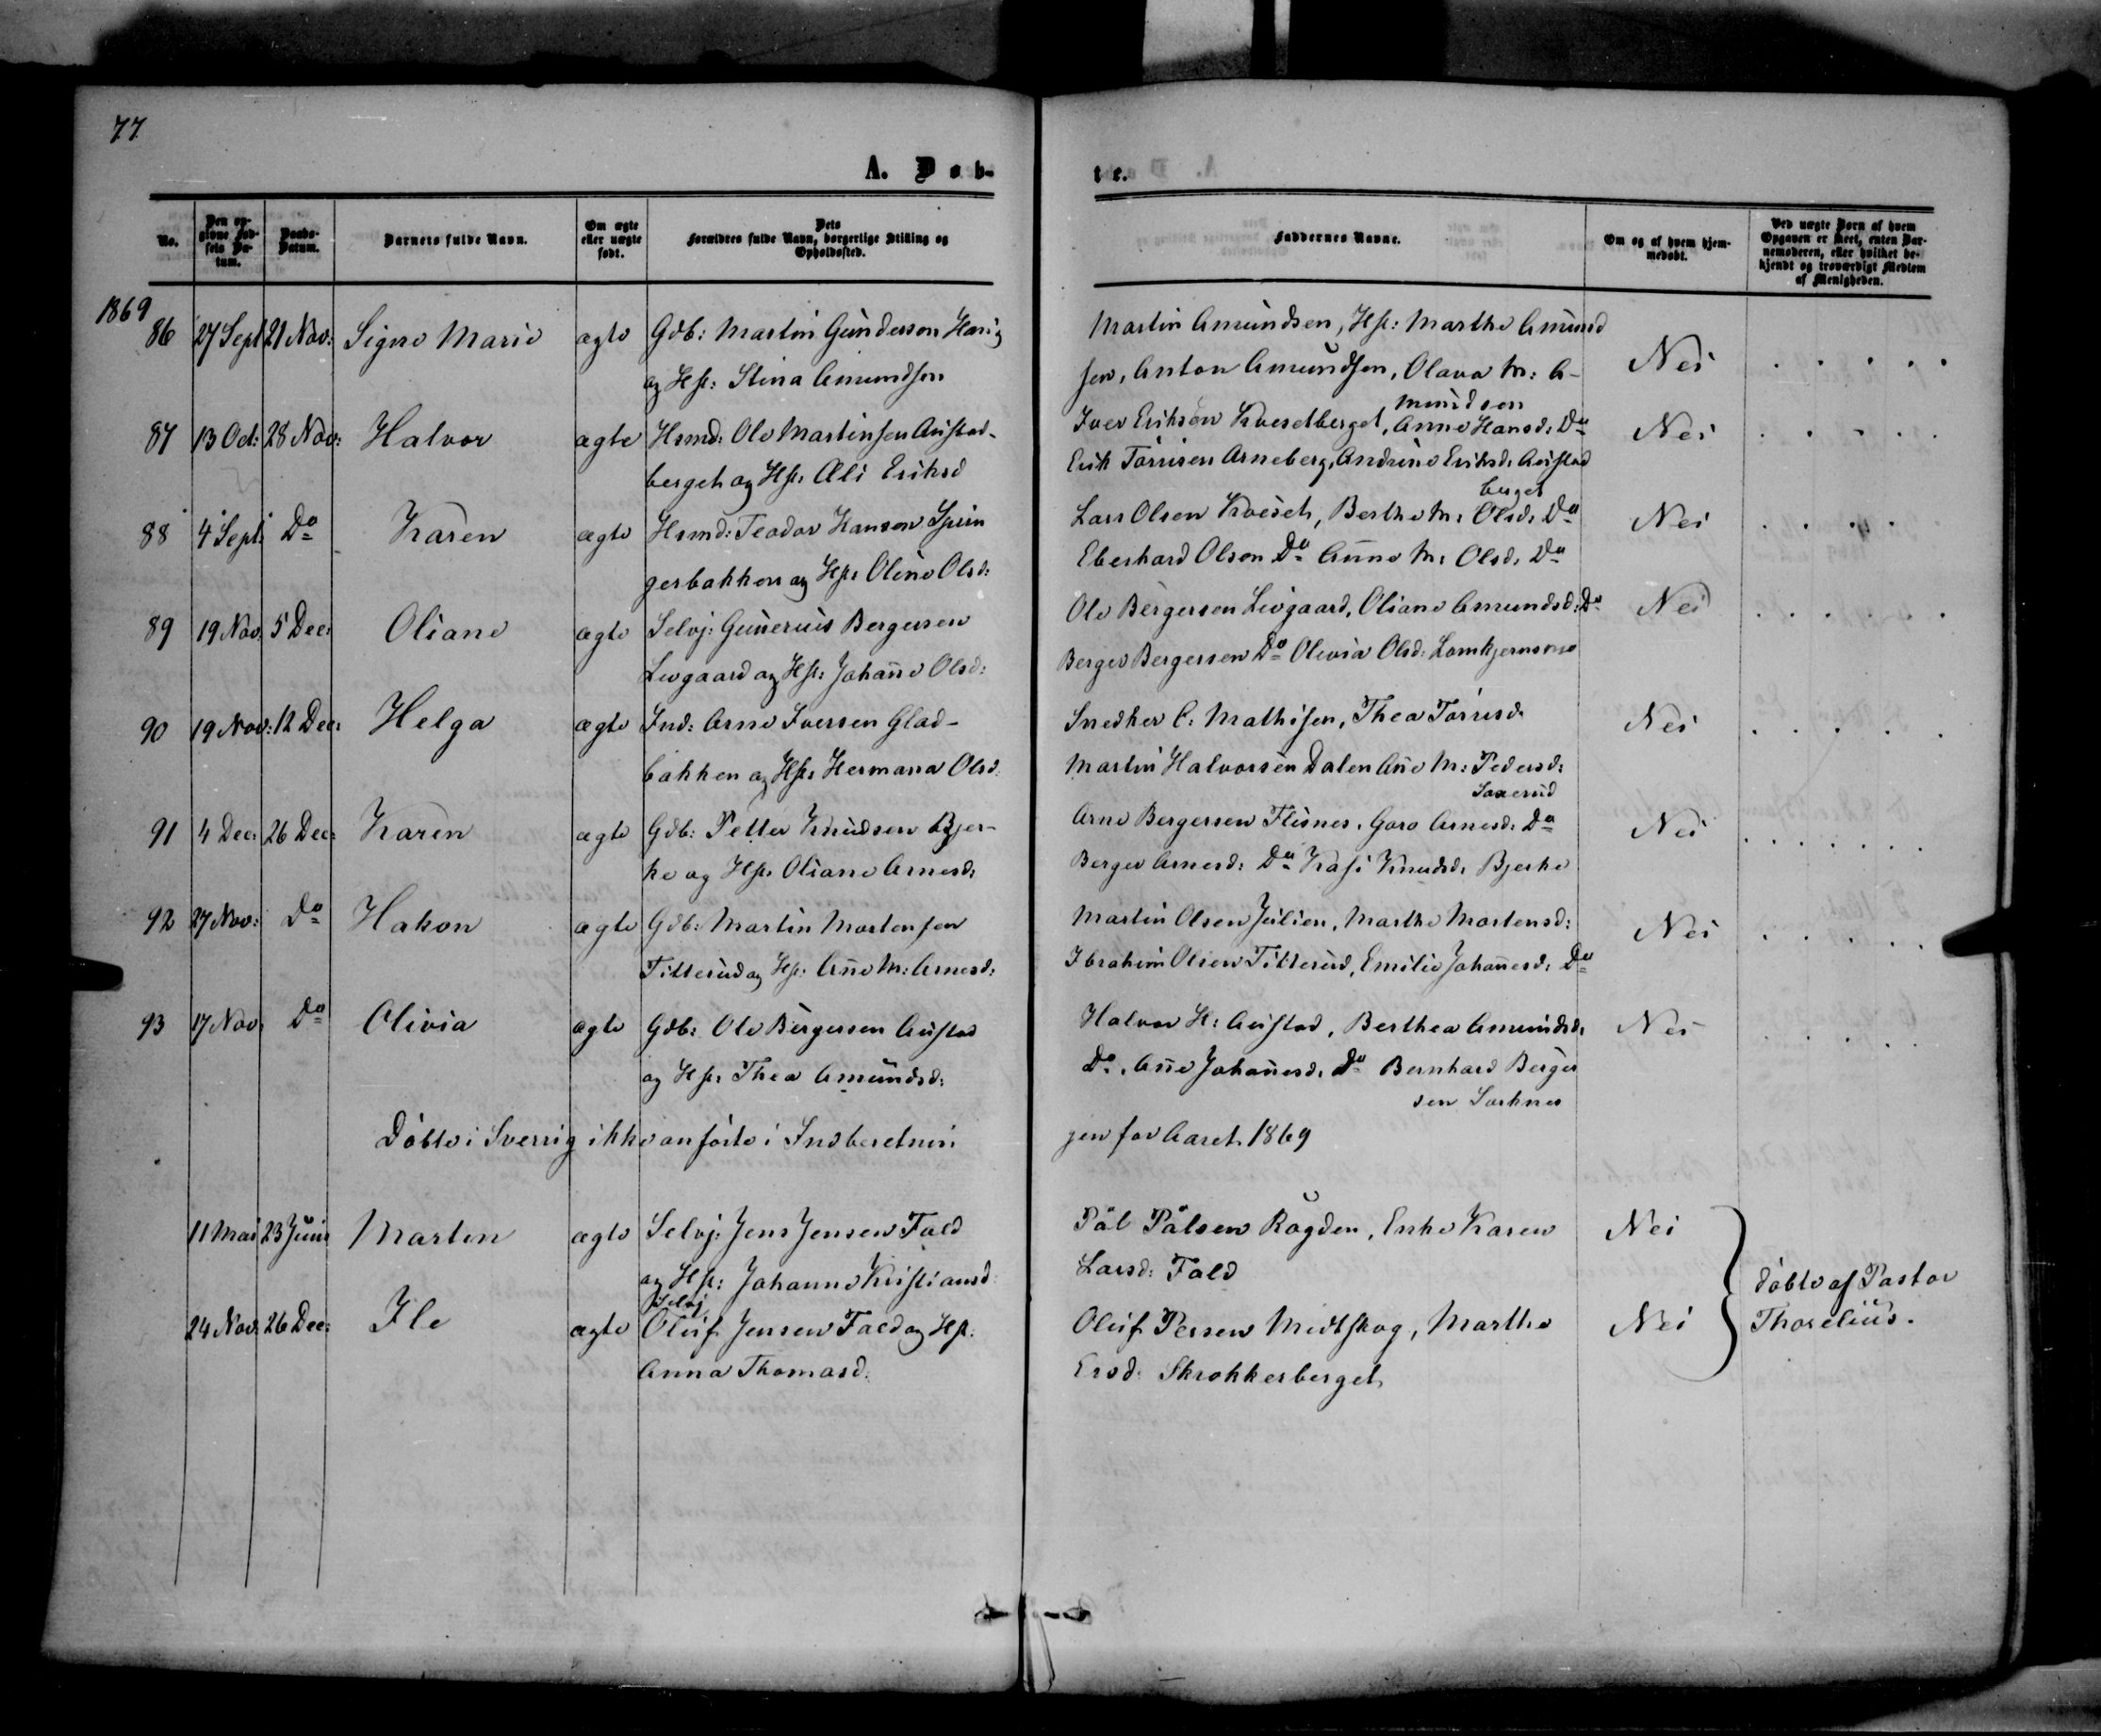 77
A. Døb-
te.
No.
Den opgivne Fødsels Datum.
Daabs-Datum.
Barnets fulde Navn.
Om ægte eller uægte født.
Dets Forældres fulde Navn, borgerlige Stilling og Opholdssted.
Faddernes Navne.
Om og af hvem hjemmedøbt.
Ved uægte Børn af hvem Opgaven er skeet, enten Barnemoderen, eller hvilket bekjendt og troværdigt Medlem af Menigheden.
1869
86 27 Sept 21 Nov: Signe Marie ægte Gdb: Martin Gunderson
og Hst: Stina Amundsen
Martin Amundsen, Hst: Marthe Amund
sen, Anton Amundsen, Olava M: A-
mundsen
Nei . . . . .
87 13 Oct: 28 Nov: Halvor ægte Hsmd: Ole Martinsen Austad-
berget og Hst: Eli Eriksd
Iver Erikson Kvesetberget, Anne Hansd: Do
Erik Törrisen Arneberg, Andrine Eriksd. Austad
berget
Nei . . . . .
88 4 Sept: Do Karen ægte Hsmd: Teodor Hanson Sprin
gerbakken og Hst: Oline Olsd:
Lars Olsen Kveset, Berthe M: Olsd: Do
Eberhard Olsen Do Anne M: Olsd: Do
Nei . . . . .
89 19 Nov. 5 Dec: Oliane ægte Selvj: Gunerius Bergersen
Levgaard og Hst: Johanne Olsd:
Ole Bergersen Levgaard, Oliane Amundsd: Do
Berger Bergersen Do Olivia Olsd: Lomkjernsmo
Nei . . . . . .
90 19 Nov: 12 Dec: Helga ægte Ind: Arne Iversen Glad-
bakken og Hst: Hermana Olsd.
Snedker C: Mathisen, Thea Törrisd.
Martin Halvorsen Dalen Ane M: Pedersd:
Saxerud
Nei . . . . .
91 4 Dec: 26 Dec: Karen ægte Gdb: Petter Knudsen Bjer-
ke og Hst: Oliane Arnesd:
Arne Bergersen Flisnes, Goro Arnesd: Do
Berger Arnesd: Do Kasi Knudsd. Bjerke
Nei . . . . . . .
92 27 Nov: Do Hakon ægte Gdb: Martin Mortensen
Titterud og Hst: Ane M: Arnesd:
Martin Olsen Julien, Marthe Mortensd:
Ibrahim Olsen Titterud, Emilie Johanesd: Do
Nei . . . . .
93 17 Nov: Do Olivia ægte Gdb: Ole Bergersen Austad
og Hst: Thea Amundsd:
Halvor H: Austad, Berthea Amundsd.
Do. Ane Johanesd. Do Bernhard Berger
sen Sarknes
Nei . . . . .
Döbte i Sverrig ikke anförte i Indberetnin
gen for Aaret 1869
11 Mai 23 Juni Marten ægte Selvj: Jens Jensen Fald
og Hst: Johanne Kristiansd
Pål Pålsen Rögden, Enke Karen
Larsd: Fald
Nei
24 Nov: 26 Dec: Ile ægte Selvj Oluf Jensen Fald og Hst:
Anna Thomasd.
Oluf Persen Midtskog, Marthe
Ersd. Skrokkerberget
Nei
döbte af Pastor
Thorelius.